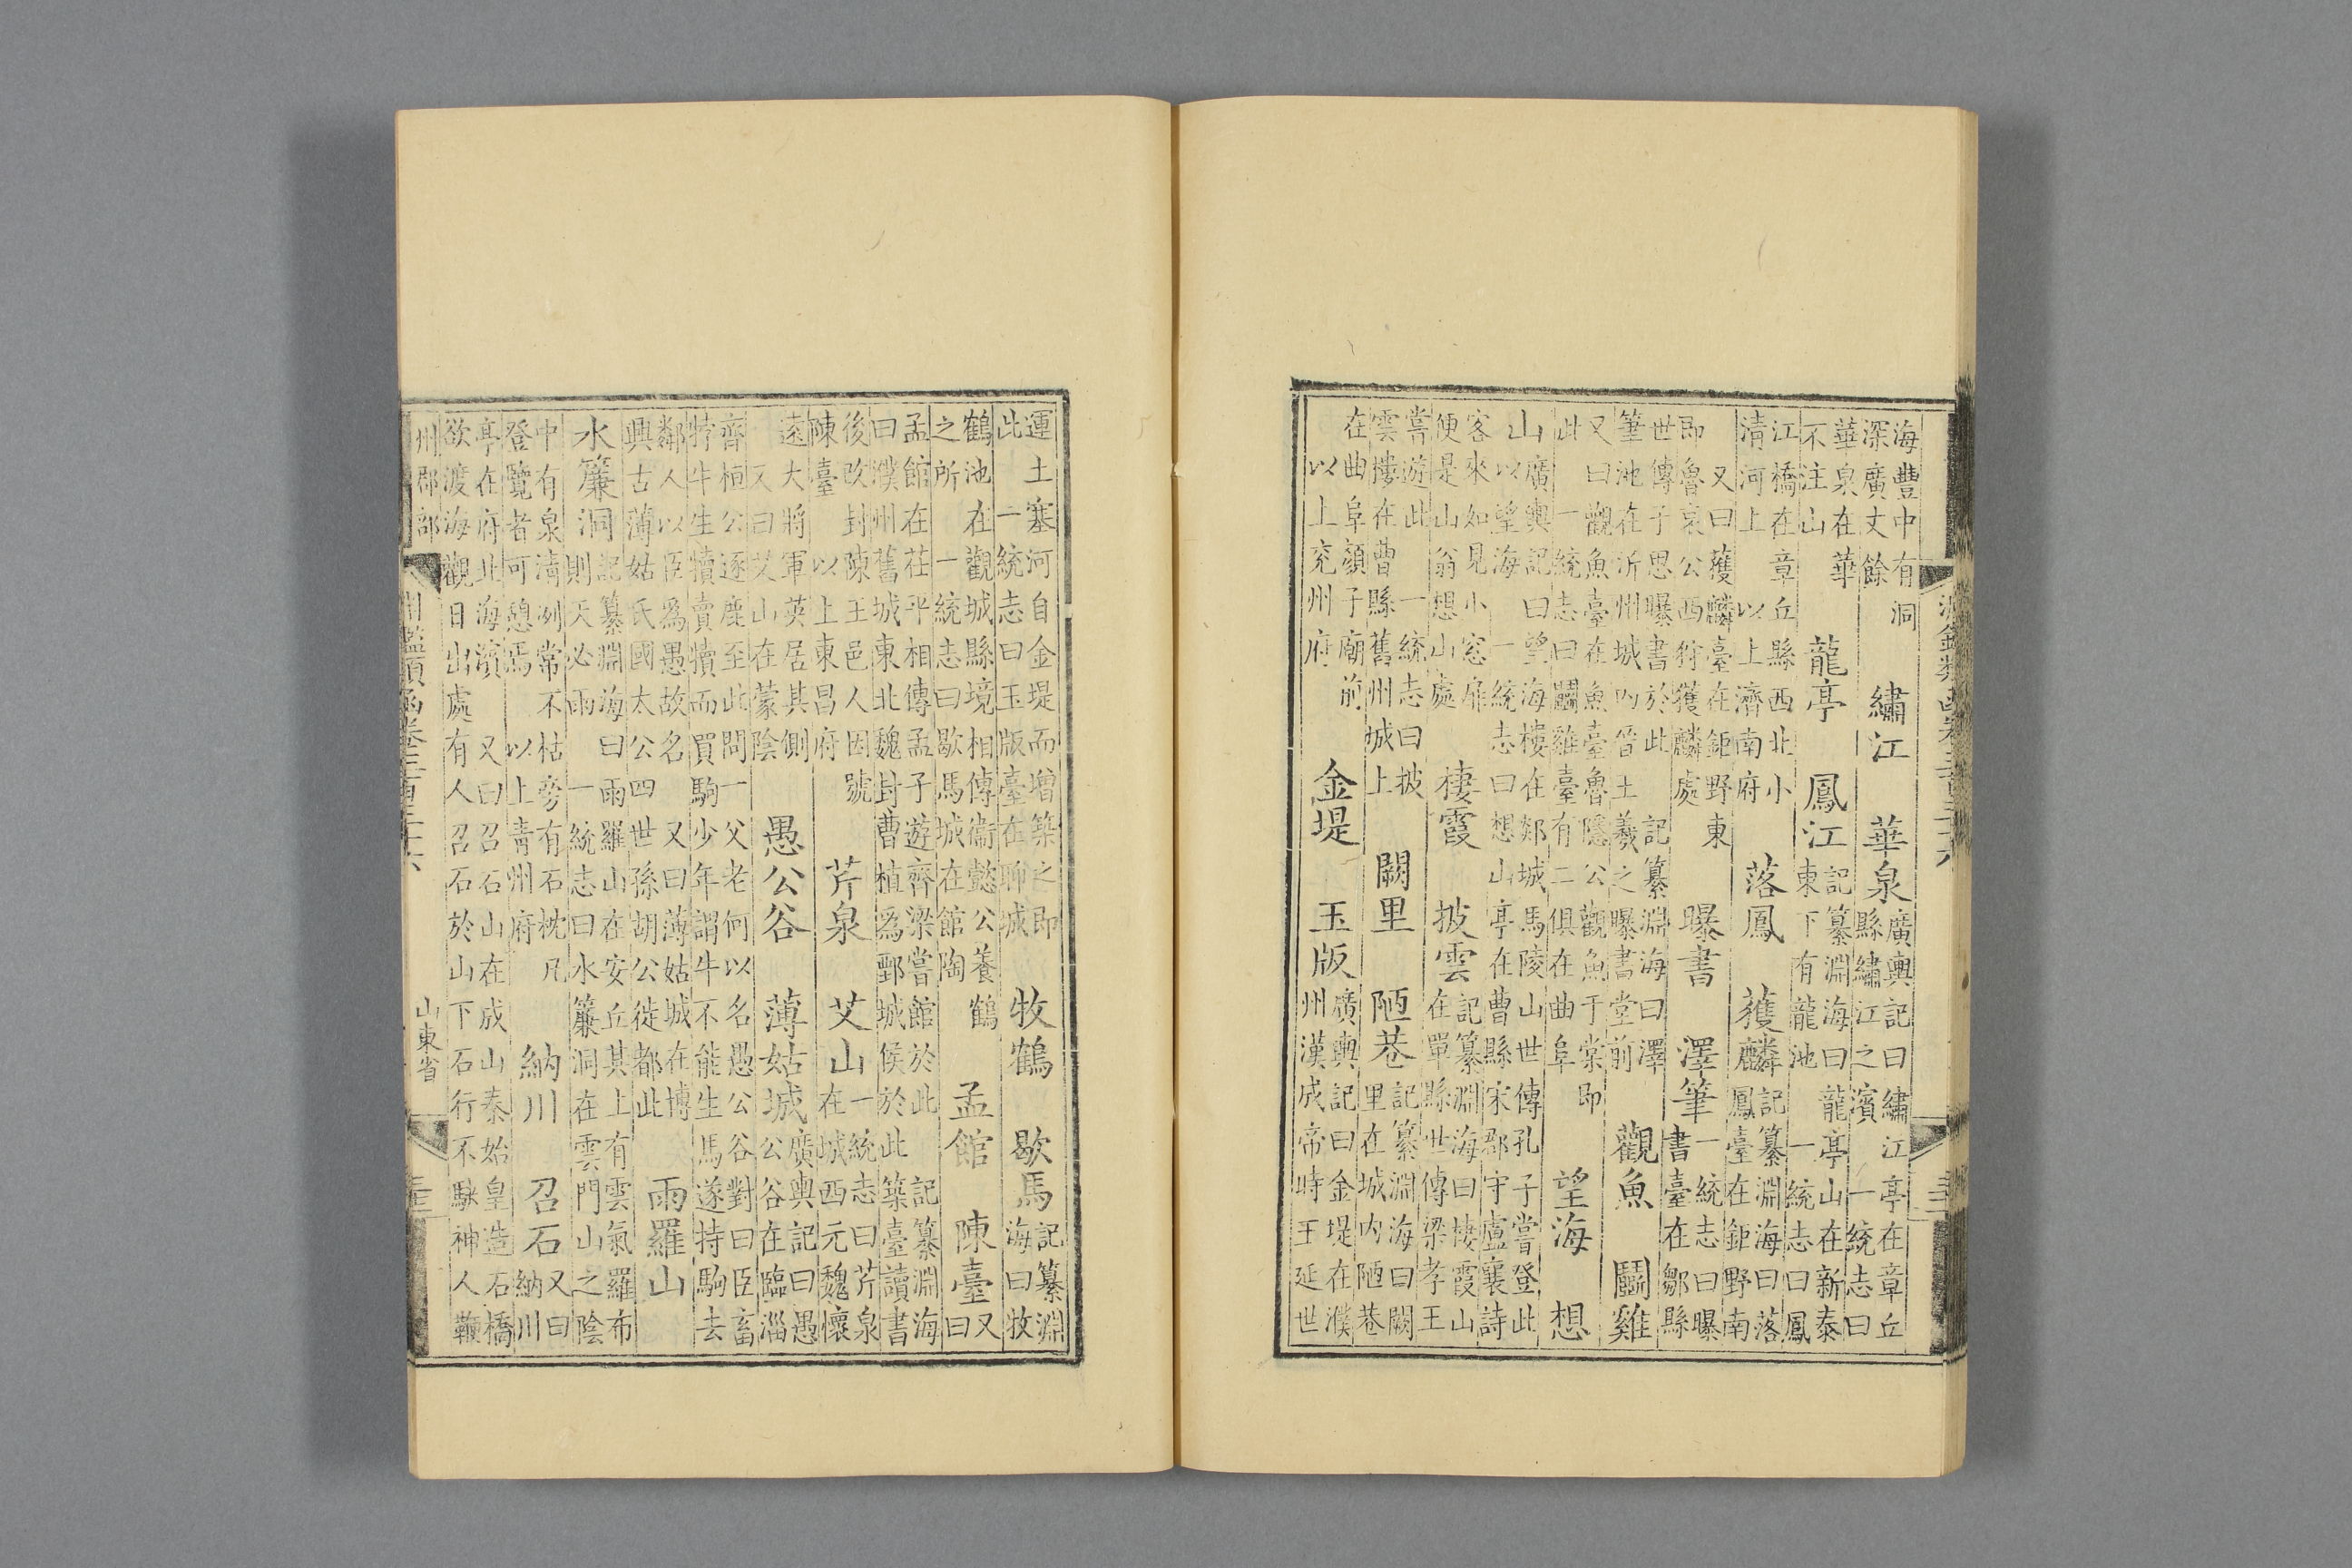 海豐中有洞
深廣丈餘
繡江 華泉
廣輿記曰繡江亭在章丘
縣繡江之濱 一統志曰
華泉在華
不注山
龍亭 鳳江
記纂淵海曰龍亭山在新泰
東下有龍池 一統志曰鳳
江橋在章丘縣西北小
清河上 以上濟南府
落鳳 獲麟
記纂淵海曰落
鳳臺在鉅野南
又曰獲麟臺在鉅野東
即魯哀公西狩獲麟處
曝書 澤筆
一統志曰曝
書臺在鄒縣
世傳子思曝書於此 記纂淵海曰澤
筆池在沂州城內晉王羲之曝書堂前
觀魚 鬭雞
又曰觀魚臺在魚臺魯隱公觀魚于棠即
此 一統志曰鬭雞臺有二俱在曲阜
望海 想
山
廣輿記曰望海樓在郯城馬陵山世傳孔子嘗登此
以望海 一統志曰想山亭在曹縣宋郡守盧襄詩
客來如見小窓扉
便是山翁想山處
棲霞 披雲
記纂淵海曰棲霞山
在單縣世傳梁孝王
嘗遊此 一統志曰披
雲樓在曹縣舊州城上
闕里 陋巷
記纂淵海曰闕
里在城內陋巷
在曲阜顏子廟前
以上兗州府
金堤 玉版
廣輿記曰金堤在濮
州漢成帝時王延世
運土塞河自金堤而增築之即
此 一統志曰玉版臺在聊城
牧鶴 歇馬
記纂淵
海曰牧
鶴池在觀城縣境相傳衞懿公養鶴
之所 一統志曰歇馬城在館陶
孟館 陳臺
又
曰
孟館在茌平相傳孟子遊齊梁嘗館於此 記纂淵海
曰濮州舊城東北魏封曹植爲鄄城侯於此築臺讀書
後改封陳王邑人因號
陳臺 以上東昌府
芹泉 艾山
一統志曰芹泉
在城西元魏懷
遠大將軍英居其側
又曰艾山在蒙陰
愚公谷 薄姑城
廣輿記曰愚
公谷在臨淄
齊桓公逐鹿至此問一父老何以名愚公谷對曰臣畜
牸牛生犢賣犢而買駒少年謂牛不能生馬遂持駒去
鄰人以臣爲愚故名 又曰薄姑城在博
興古薄姑氏國太公四世孫胡公徙都此
雨羅山
水簾洞
記纂淵海曰雨羅山在安丘其上有雲氣羅布
則天必雨 一統志曰水簾洞在雲門山之陰
中有泉淸洌常不枯旁有石枕几
登覽者可憩焉 以上靑州府
納川 召石
又曰
納川
亭在府北海濱 又曰召石山在成山秦始皇造石橋
欲渡海觀日出處有人召石於山下石行不駛神人鞭
州郡部
山東省